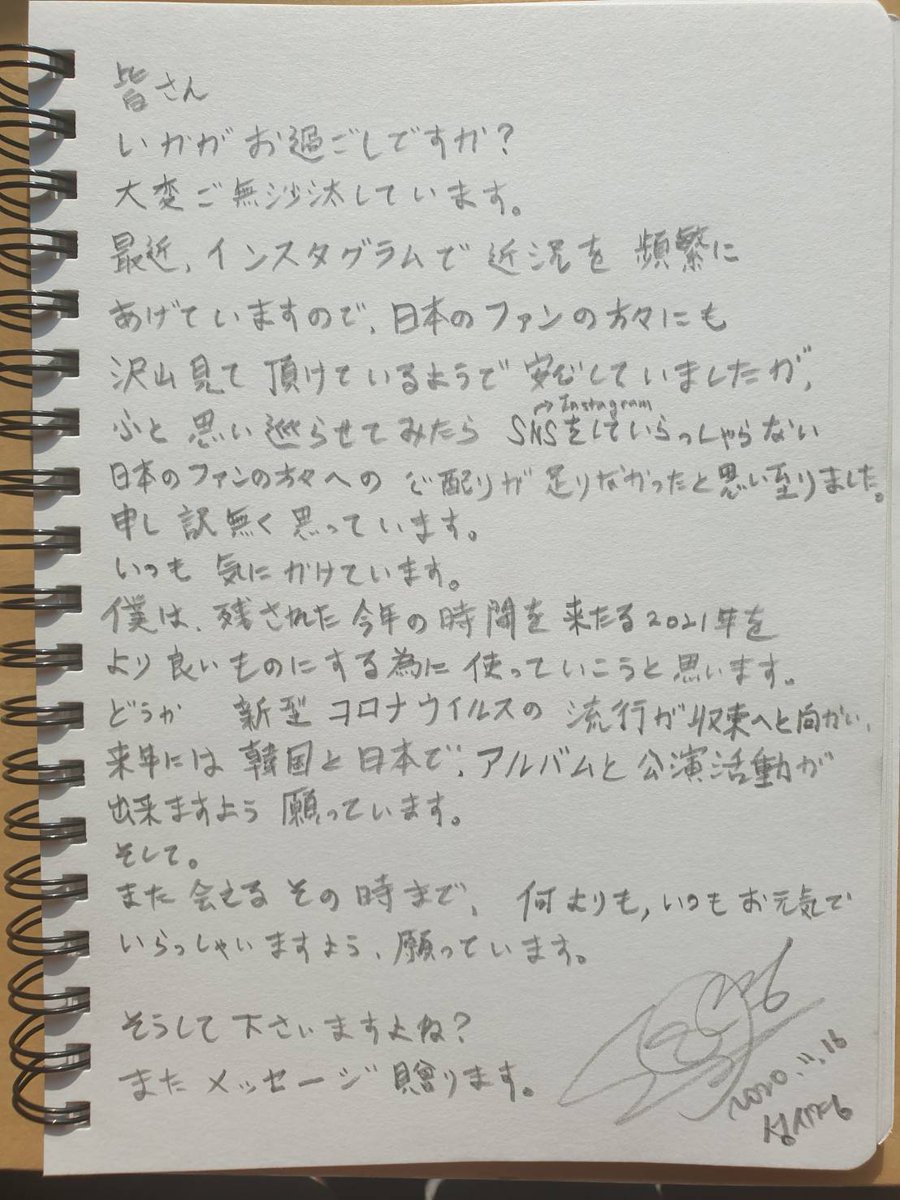 皆さん
いかがお過ごしですか?
大変ご無沙汰しています。
最近、インスタグラムで近況を頻繁に
あげていますので、日本のファンの方々にも
沢山見て頂けているようで安心していましたが、
→Instagram
ふと思い巡らせてみたら SNSをしていらっしゃらない
日本のファンの方々への心配りが足りなかったと思い至りました。
申し訳無く思っています。
いつも気にかけています。
僕は、残された今年の時間を来たる2021年を
より良いものにする為に使っていこうと思います。
どうか 新型コロナウイルスの流行が収束へと向かい、
来年には韓国と日本で、アルバムと公演活動が
出来ますよう願っています。
そして。
また会えるその時まで、何よりも、いつもお元気で
いらっしゃいますよう、願っています。
そうして下さいますよね?
またメッセージ贈ります。
2020.11.16
성시경